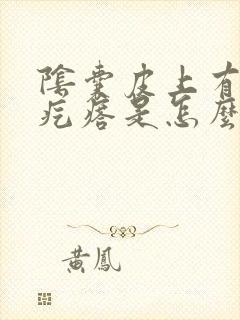 陰囊皮上有
疙瘩是怎麼
黃鳳